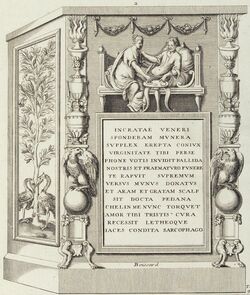 2
INGRATAE VENERI
SPONDERAM MVNERA
SVPPLEX EREPTA CONIVX
VIRGINITATE TIBI PERSE
PHONE VOTIS INVIDIT PALLIDA
NOSTRIS ET PRAEMATVRO FVNERE
TE RAPVIT SVPREMVM
VERSVS MVNVS DONATVS
ET ARAM ET GRATAM SCALP
SIT DOCTA PEDANA
CHELIN ME NVNC TORQVET
AMOR TIBI TRISTIS CVRA
RECESSIT LETHEOQVE
IACES CONDITA SARCOPHAGO
Boissard